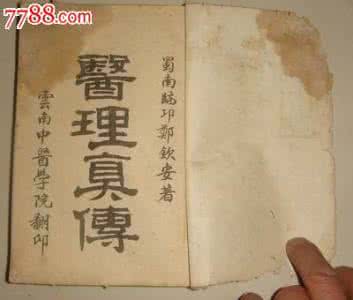 7788.com
蜀南临邛鄭欽安著
醫理真傳
雲南中醫學院翻印